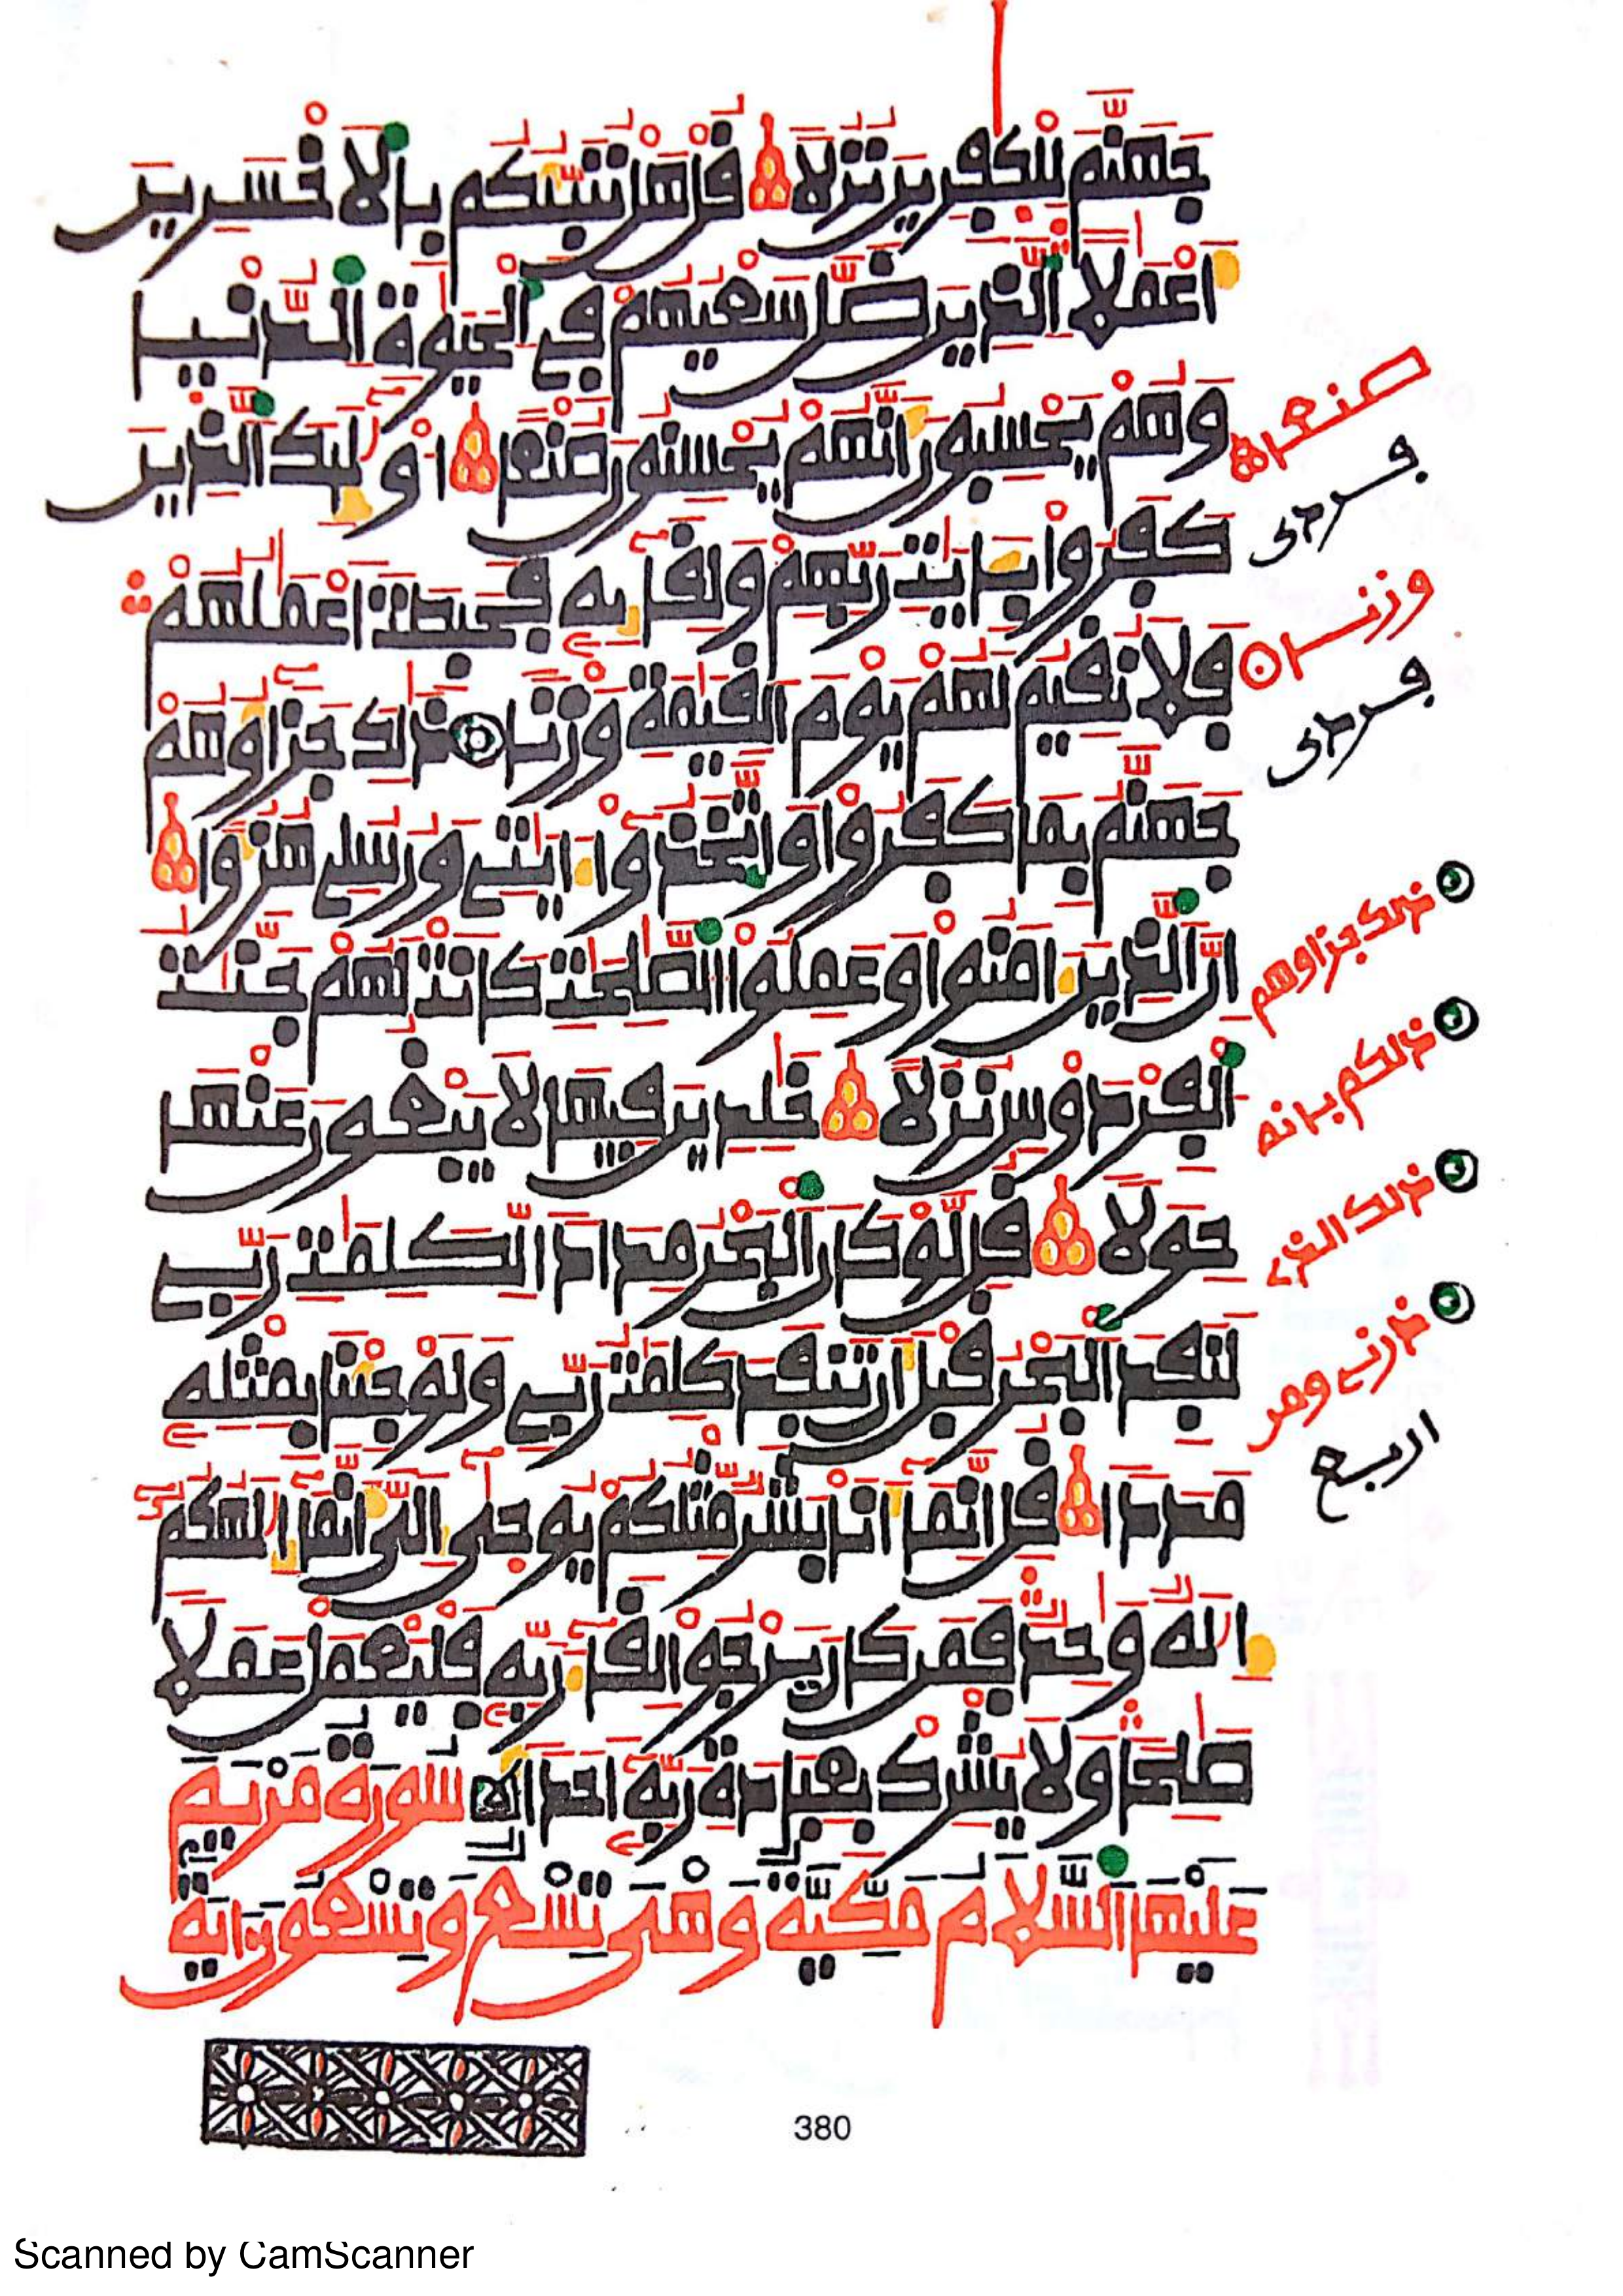 جَهَنَّمَ لِلْكٰفِرِينَ نُزُلًا قُلْ هَلْ نُنَبِّئُكُم بِالَاخْسَرِينَ
أَعْمَٰلًا الذِينَ ضَلَّ سَعْيُهُمْ فِي الْحَيَوٰةِ الدُّنْيَا
وَهُمْ يَحْسِبُونَ أَنَّهُمْ يُحْسِنُونَ صُنْعًا أُوْلَٰئِكَ الذِينَ
كَفَرُوا بِـَٔايَٰتِ رَبِّهِمْ وَلِقَائِهِ فَحَبِطَتَ اعْمَٰلُهُمْ
فَلَا نُقِيمُ لَهُمْ يَوْمَ الْقِيَٰمَةِ وَزْنًا ذَٰلِكَ جَزَاؤُهُمْ
جَهَنَّمُ بِمَا كَفَرُوا وَاتَّخَذُوا ءَايَٰتِي وَرُسُلِي هُزُؤًا
إِنَّ الذِينَ ءَامَنُوا وَعَمِلُوا الصَّٰلِحَٰتِ كَانَتْ لَهُمْ جَنَّٰتُ
الْفِرْدَوْسِ نُزُلًا خَٰلِدِينَ فِيهَا لَا يَبْغُونَ عَنْهَا
حِوَلًا قُل لَّوْ كَانَ الْبَحْرُ مِدَادًا لِّكَلِمَٰتِ رَبِّي
لَنَفِدَ الْبَحْرُ قَبْلَ أَن تَنفَدَ كَلِمَٰتُ رَبِّي وَلَوْ جِئْنَا بِمِثْلِهِ
مَدَدًا قُلِ انَّمَا أَنَا بَشَرٌ مِّثْلُكُمْ يُوحَىٰ إِلَيَّ أَنَّمَا إِلَٰهُكُمُ
إِلَٰهٌ وَٰحِدٌ فَمَن كَانَ يَرْجُوا لِقَاءَ رَبِّهِ فَلْيَعْمَلْ عَمَلًا
صَٰلِحًا وَلَا يُشْرِكْ بِعِبَادَةِ رَبِّهِ أَحَدًا سُورَةُ مَرْيَمَ
عَلَيْهَا السَّلَامُ مَكِّيَّةٌ وَهِيَ تِسْعٌ وَتِسْعُونَ ءَايَةً
صنعا
وزنا
ذلك جزاؤهم
ذلكم بانه
ذلك الذي
ذرني ومن
اربع
380
Scanned by CamScanner